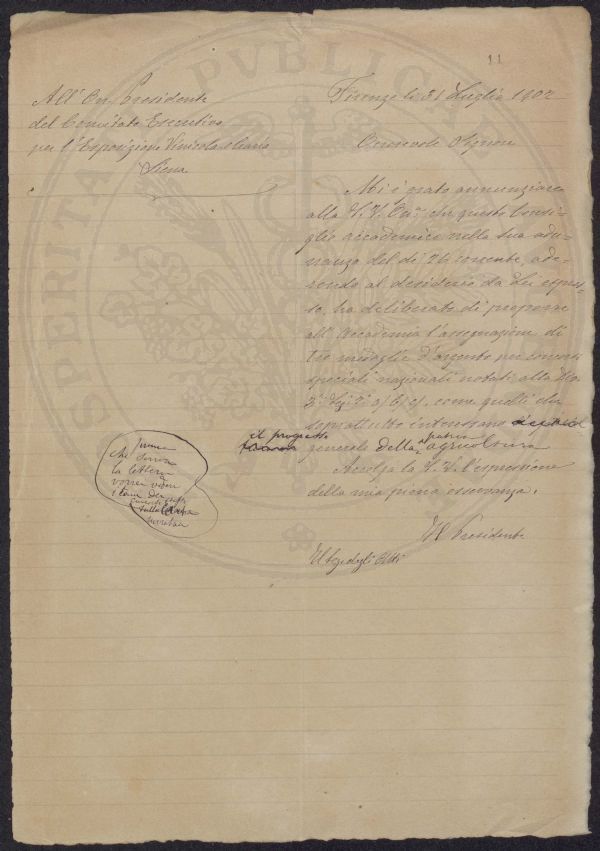 11
All' On. Presidente
del Comitato Esecutivo
per l'Esposizione Vinicola Olearia
Siena
Firenze li 31 Luglio 1902
Onorevole Signore
Mi è grato annunziare
alla V. S. On. che questo Consi-
glio accademico nella sua adu-
nanza del dì 26 corrente, ade-
rendo al desiderio da Lei espres-
so, ha deliberato di proporre
all'Accademia l'assegnazione di
tre medaglie d'argento pei concorsi
speciali nazionali notati alla Div.
2ª a/ b/ c/, come quelli che
soprattutto interessano
il progresso
generale della patria agricoltura
Accolga la S. V. l'espressione
della mia piena osservanza.
Il Presidente
Il degli Atti
prima
che scriva
la lettera
vorrei vedere
i temi dei
concorsi
sulla
PVBLICAE
PROSPERITATI